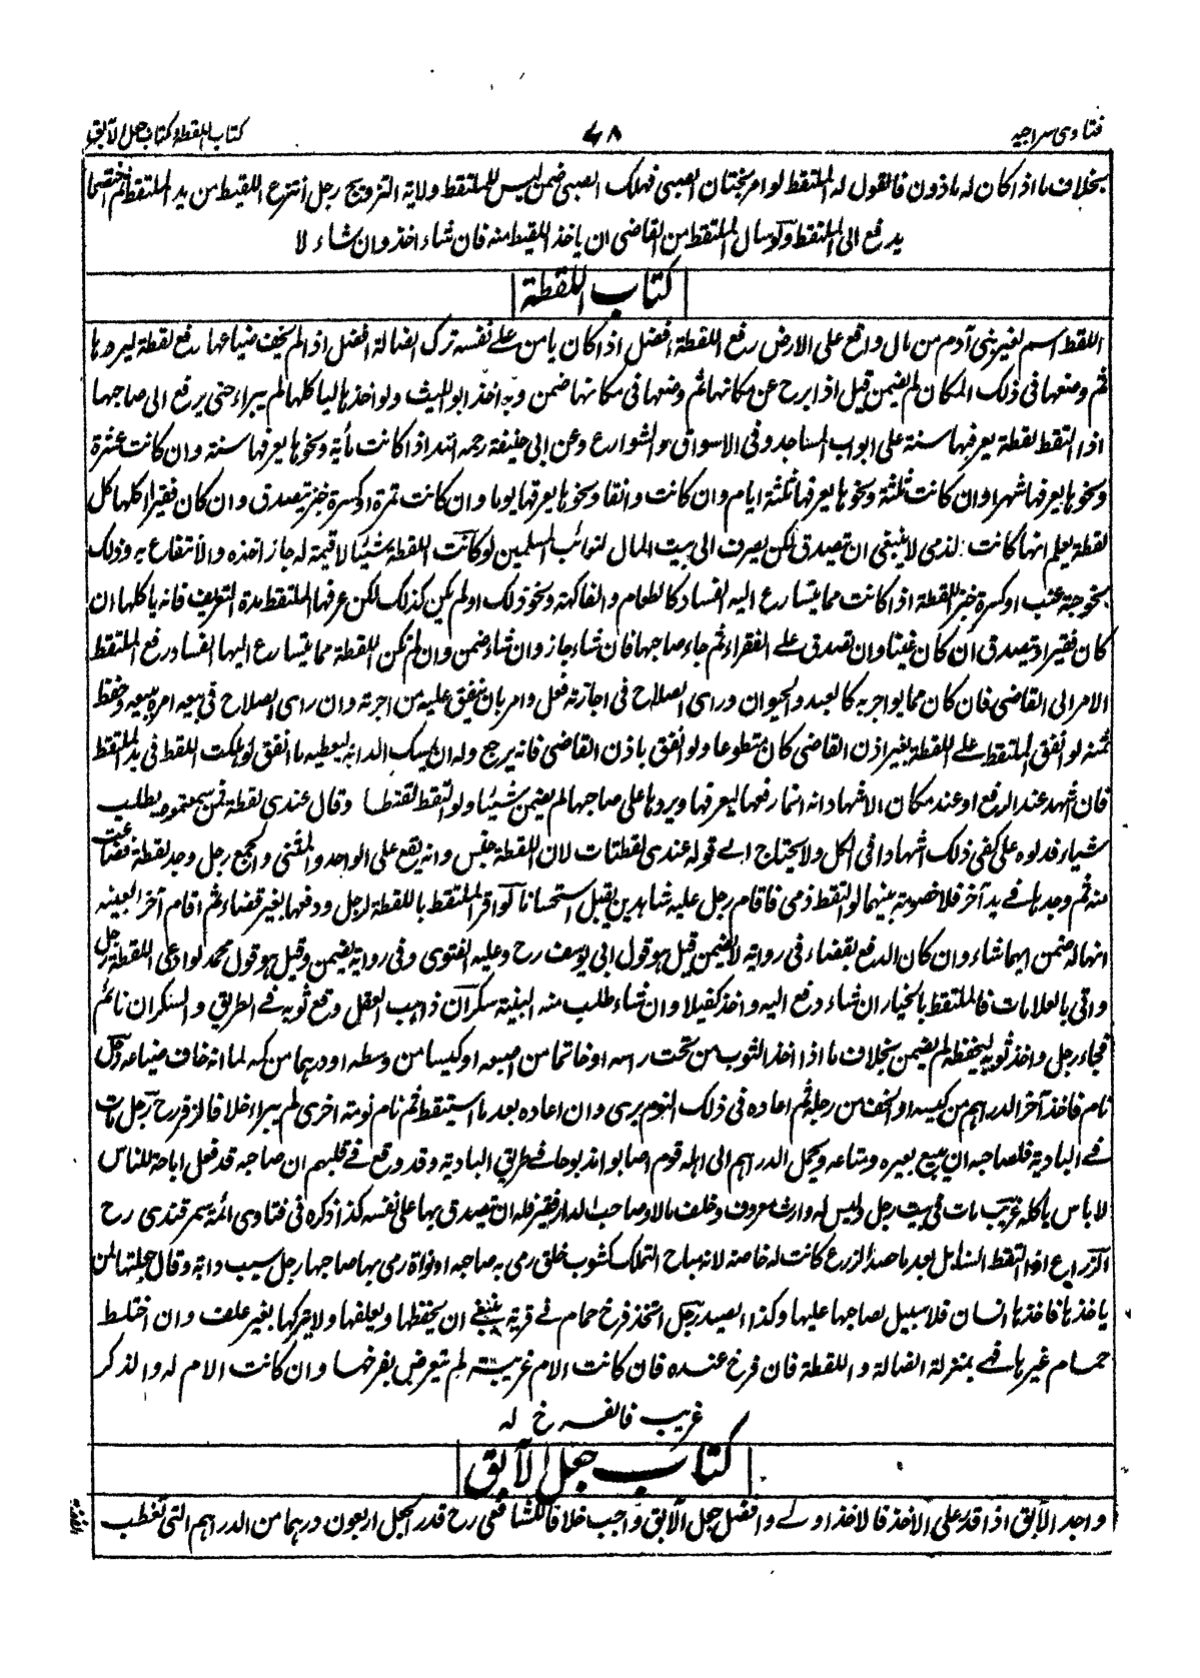 فتاوى سراجيه
٧٨
كتاب اللقطة وكتاب جعل الآبق
بخلاف ما اذا كان له ماذون فالقول له الملتقط لو امر بختان الصبى فهلك الصبى ضمن ليس للملتقط ولاية التزويج رجل انتزع اللقيط من يد الملتقط ثم اختصما
يدفع الى الملتقط ولو سال الملتقط من القاضى ان ياخذ اللقيط منه فان شاء اخذ وان شاء لا
كتاب اللقطة
اللقط اسم لغير بنى آدم من مال واقع على الارض رفع اللقطة افضل اذا كان يامن على نفسه ترك الضالة افضل اذا لم يخف ضياعها رفع لقطة ليردها
ثم وضعها فى ذلك المكان لم يضمن قيل اذا برح عن مكانها ثم وضعها فى مكانها ضمن وبه اخذ ابو الليث ولو اخذها لياكلها لم يبراء حتى يرفع الى صاحبها
اذا التقط لقطة يعرفها سنة على ابواب المساجد وفى الاسواق والشوارع وعن ابى حنيفة رحمه الله اذا كانت مأية ونحوها يعرفها سنة وان كانت عشرة
ونحوها يعرفها شهرا وان كانت ثلثة ونحوها يعرفها ثلثة ايام وان كانت دانقا ونحوها يعرفها يوما وان كانت تمرة او كسرة خبز تصدق وان كان فقيرا اكلها كل
لقطة يعلم انها كانت لذمى لا ينبغى ان تصدق لكن يصرف الى بيت المال لنوائب المسلمين لو كانت اللقطة شيئا لا قيمة له جاز اخذه والانتفاع به وذلك
نحو حبة عنب او كسرة خبز اللقطة اذا كانت مما يتسارع اليه الفساد كالطعام والفاكهة ونحو ذلك او لم يكن كذلك لكن عرفها الملتقط مدة التعريف فانه ياكلها ان
كان فقيرا وتصدق ان كان غنيا وان تصدق على الفقراء ثم جاء صاحبها فان شاء جاز وان شاء ضمن وان لم تكن اللقطة مما يتسارع اليها الفساد رفع الملتقط
الامر الى القاضى فان كان مما يواجر به كالعبد والحيوان وراى الصلاح فى اجارته فعل وامر بان ينفق عليه من اجرته وان راى الصلاح فى بيعه امر ببيعه وحفظ
ثمنه لو انفق الملتقط على اللقطة بغير اذن القاضى كان متطوعا ولو انفق باذن القاضى فانه يرجع وله ان يمسك الدابة ليعطيه ما انفق لو هلكت اللقط فى يد الملتقط
فان شهد عند الرفع او عند مكان الاشهاد انه انما رفعها ليعرفها ويردها على صاحبها لم يضمن شيئا ولو التقط لقطا وقال عندى لقطة فمن سمعتموه يطلب
شياء فدلوه على كفى ذلك اشهادا فى الكل ولا يحتاج الى قوله عندى لقطتات لان اللقطة جنس وانه يقع على الواحد والمثنى والجمع رجل وجد لقطة فضاعت
منه ثم وجدها فى يد آخر فلا خصومة بينهما لو التقط ذمى فاقام رجل عليه شاهدين يقبل استحسانا لو اقر الملتقط باللقطة لرجل ودفعها بغير قضاء ثم اقام آخر البينة
انها له ضمن ايهما شاء وان كان الدفع بقضاء فى رواية لا يضمن قيل هو قول ابى يوسف رح وعليه الفتوى وفى رواية يضمن وقيل هو قول محمد لو ادعى اللقطة رجل
واتى بالعلامات فالملتقط بالخيار ان شاء دفع اليه واخذ كفيلا وان شاء طلب منه البينة سكران ذاهب العقل وقع ثوبه فى الطريق والسكران نائم
فجاء رجل واخذ ثوبه ليحفظه لم يضمن بخلاف ما اذا اخذ الثوب من تحت راسه او خاتما من اصبعه او كيسا من وسطه او درهما من كمه لما انه خاف ضياعه رجل
نام فاخذ آخر الدراهم من كيسه او الخف من رجله ثم اعاده فى ذلك النوم برى وان اعاده بعد ما استيقظ ثم نام نومة اخرى لم يبراء خلافا لزفر رح رجل مات
فى البادية فلصاحبه ان يبيع بعيره ومتاعه ويحمل الدراهم الى اهله قوم اصابوا مذبوحا فى طريق البادية وقد وقع فى قلبهم ان صاحبه قد فعل اباحة للناس
لا باس باكله غريب مات فى بيت رجل وليس له وارث معروف وخلف مالا وصاحب الدار فقير فله ان تصدق بها على نفسه كذا ذكره فى فتاوى ائمة سمرقندى رح
الزراع اذا التقط السنابل بعد ما حصد الزرع كانت له خاصة لانه مباح التملك كثوب خلق رمى به صاحبه او نواة رمى بها صاحبها رجل سيب دابة وقال جعلتها لمن
ياخذها فاخذها انسان فلا سبيل لصاحبها عليها وكذا الصيد رجل اتخذ فرخ حمام فى قرية ينبغى ان يحفظها ويعلفها ولا يتركها بغير علف وان اختلط
حمام غيرها فهى بمنزلة الضالة واللقطة فان فرخ عنده فان كانت الام غريبة لم يتعرض بفرخها وان كانت الام له والذكر
غريب فالفرخ له
كتاب جعل الآبق
واجد الآبق اذا قدر على الاخذ فالاخذ اولى وافضل جعل الآبق واجب خلافا للشافعى رح قدر الجعل اربعون درهما من الدراهم التى تغطب